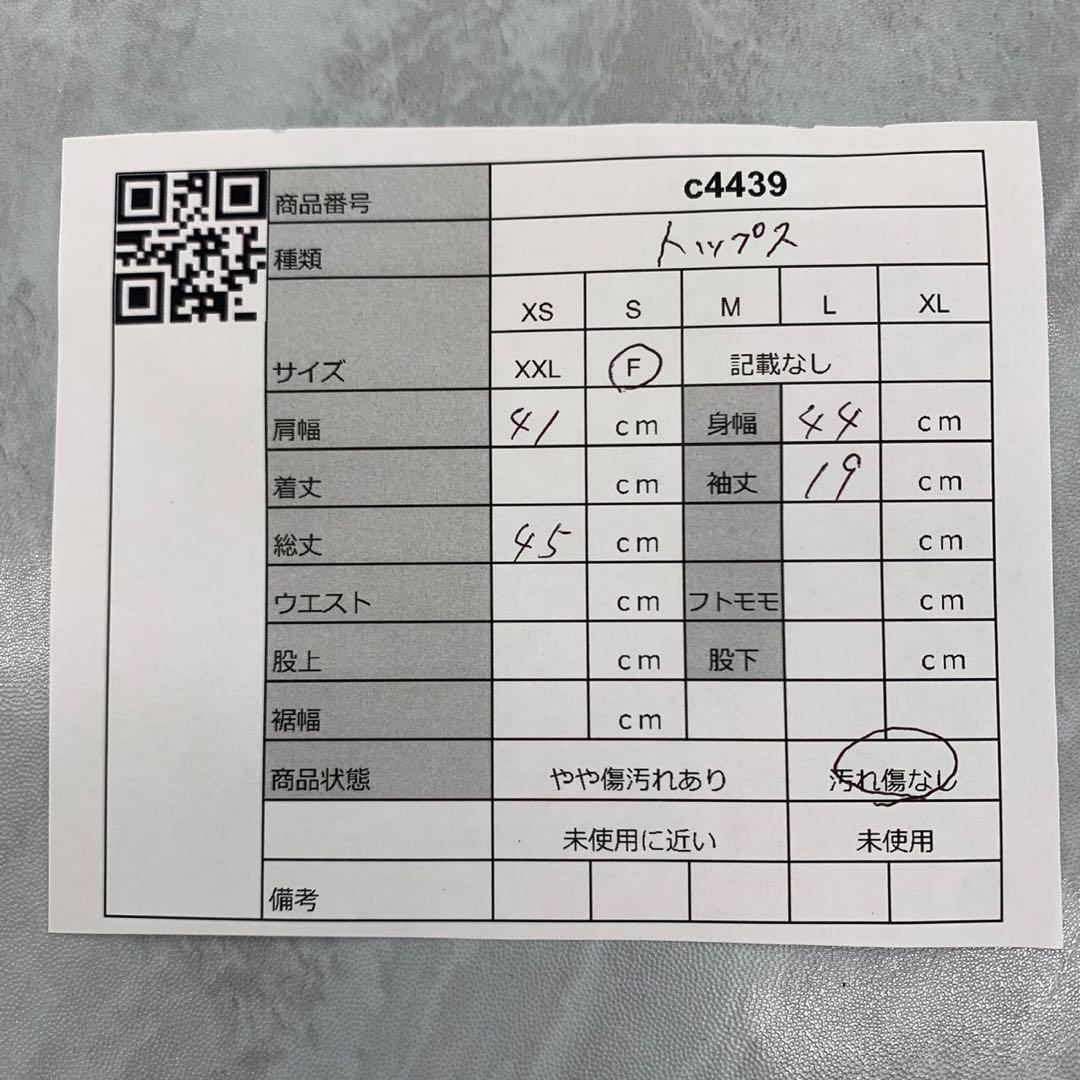 商品番号 c4439
種類 トップス
XS S M L XL
サイズ XXL F 記載なし
肩幅 41 cm 身幅 44 cm
着丈 cm 袖丈 19 cm
総丈 45 cm cm
ウエスト cm フトモモ cm
股上 cm 股下 cm
裾幅 cm
商品状態 やや傷汚れあり 汚れ傷なし
未使用に近い 未使用
備考